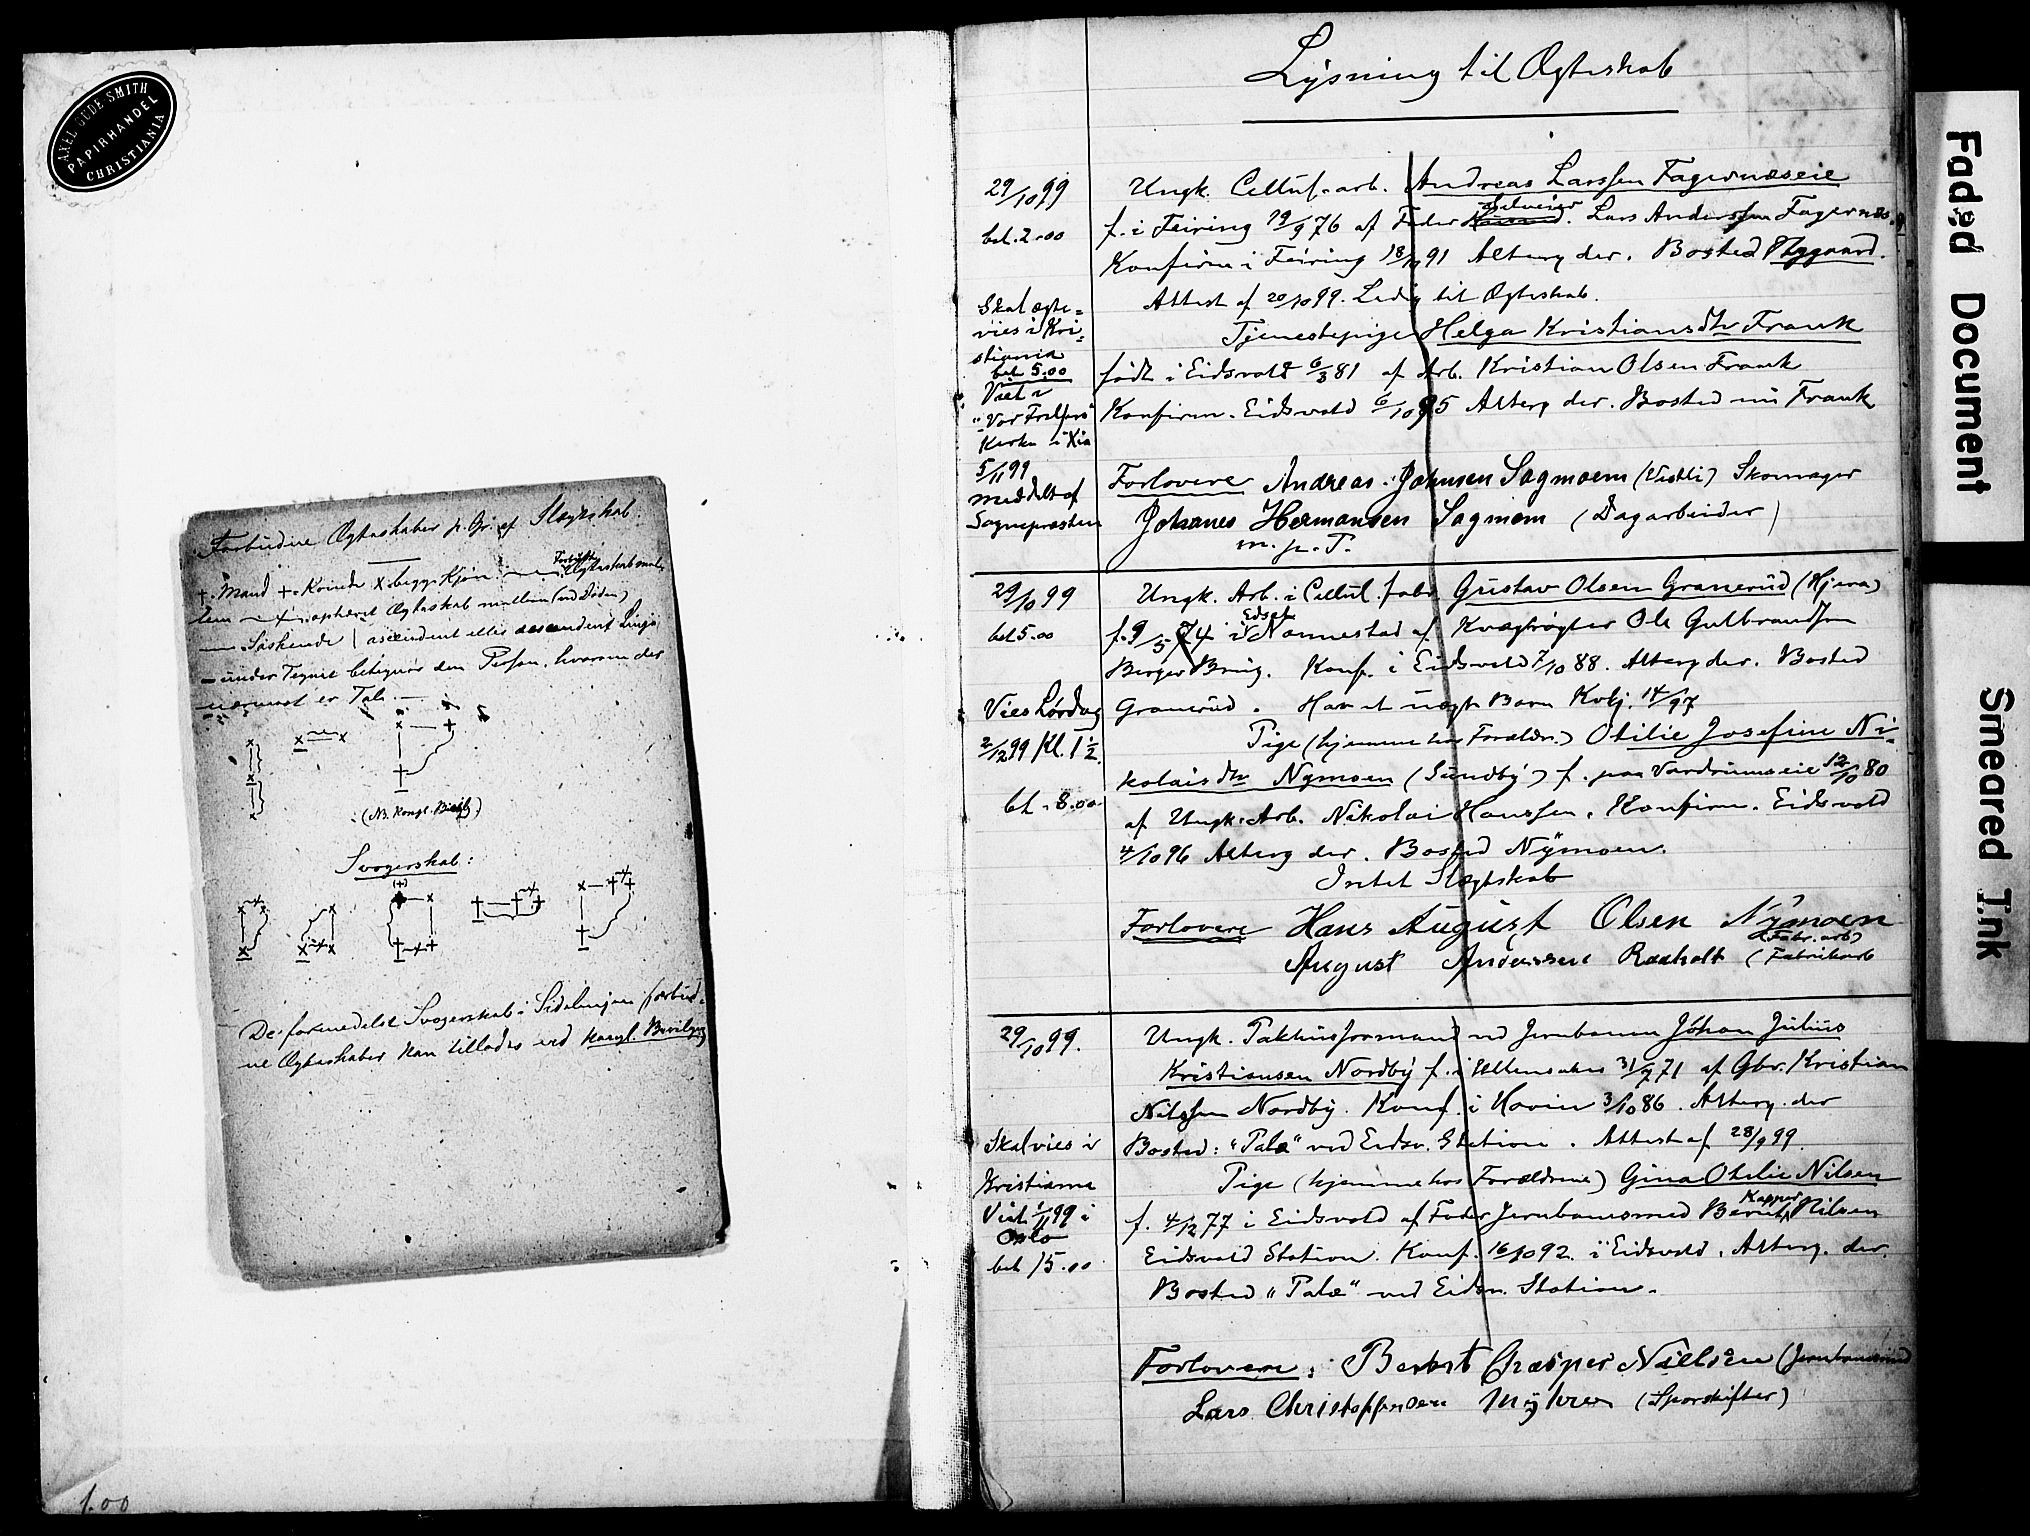 AXEL GUDE SMITH
PAPIRHANDEL
CHRISTIANIA
Forbudne Ægteskaber p. Gr. af Slægtskab:
+. Mand +. Kvinde x. begge Kjøn. Forbudt Ægteskab mel-
lem ophævet Ægteskab mellem (ved Døden)
Søskende | ascendent eller descendent Linje
- under Tegnet betegner den Person, hvorom der
nærmest er Tale.
(NB. Kongl. Bevilg.)
Svogerskab:
De formedelst Svogerskab i Sidelinjen forbud-
ne Ægteskaber kan tillades ved Kongl. Bevilgng
1.00
Lysning til Ægteskab
29/10 99
bet. 2.00
Skal ægte-
vies i Kri-
stiania
bet 5.00
Viet i
"Vor Frelsers"
Kirke i Kia
5/11 99
meddelt af
Sognepresten
Ungk. Cellul. arb. Andreas Larssen Fagernæseie
f. i Feiring 19/9 76 af Fader Selveier Lars Anderssen Fagernæs.
Konfirm i Feiring 18/10 91 Alterg. der. Bosted Nygaard.
Attest af 20/10 99. Ledig til Ægteskab.
Tjenestepige Helga Kristiansdtr Frank
født i Eidsvold 6/3 81 af Arb. Kristian Olsen Frank
Konfirm. Eidsvold 6/10 95 Alterg der. Bosted nu Frank
Forlovere Andreas Johnsen Sagmoem (Vestli) Skomager
Johanes Hermansen Sagmoem (Dagarbeider)
m. p. P.
29/10 99
bet 5.00
Vies Lørdag
2/12 99 Kl. 1 1/2.
bet. 8.00
Ungk. Arb. i Cellul. fabr. Gustav Olsen Granerud (Hjera)
f. 9/5 74 i Nannestad af Kvægrøgter Ole Gulbrandsen
Berger Brug. Konf. i Eidsvold 7/10 88. Alterg der. Bosted
Granerud. Har et uægte Barn Kvkj. 14/97
Pige (hjemme hos Forældr.) Otilie Josefine Ni-
kolaisdtr Nymoen (Sundby) f. paa Vardrumseie 12/10 80
af Ungk. Arb. Nikolai Hanssen. Konfirm. Eidsvold
4/10 96 Alterg der. Bosted Nymoen.
Intet Slægtskab
Forlovere Hans August Olsen Nymoen
(Fabr. arb)
August Andersen Raaholt (Fabrikarb
29/10 99.
Skal vies i
Kristiania
Viet 1/11 99 i
Oslo
bet 15.00
Ungk. Pakhusformand ved Jernbanen Johan Julius
Kristiansen Nordby f. i Ullensaker 31/7 71 af Gbr. Kristian
Nilssen Nordby. Konf. i Hovin 3/10 86. Alterg. der
Bosted: "Palæ" ved Eidsv. Station. Attest af 28/9 99.
Pige (hjemme hos Forældrene) Gina Otelie Nilsen
f. 4/12 77 i Eidsvold af Fader Jernbanesmed Bernt Kasper Nilsen
Eidsvold Station. Konf. 16/10 92. i Eidsvold. Alterg. der.
Bosted "Palæ" ved Eidsv. Station.
Forlovere: Berbst Chræsper Nielsen (Jernbanesmed
Lars Christophersen Myhrer (Sporskifter)
Faded Document
Smeared Ink